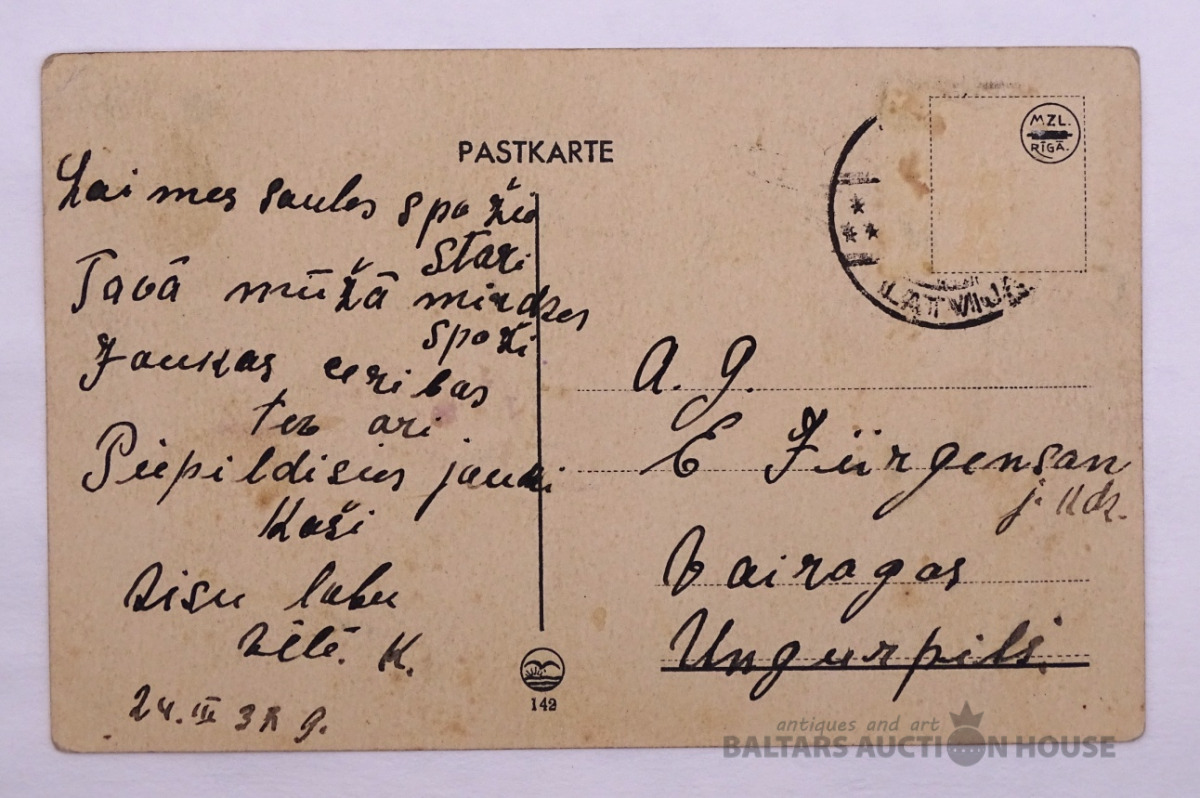 PASTKARTE
MZL.
RĪGĀ.
LATVIJA
Laimes saules spožie
stari
Tavā mūžā mirdzes
spoži
Jaukas ceribas
tev ari
Piepildisies jauki
Koši
Visu labu
vēlē. K.
24. III 3 g.
A. g.
E Jürgensan
j. kdz.
Vairagas
Ungurpils.
142
antiques and art
BALTARS AUCTION HOUSE